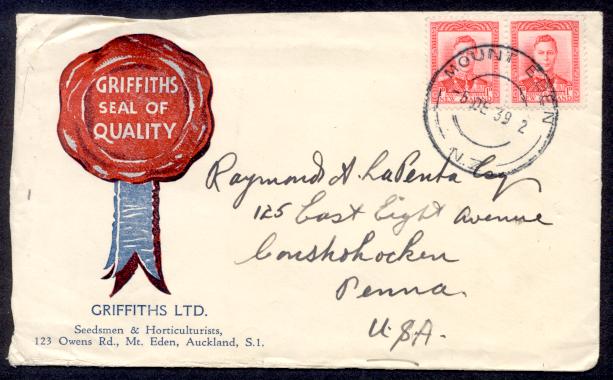 GRIFFITHS
SEAL OF
QUALITY
GRIFFITHS LTD.
Seedsmen & Horticulturists,
123 Owens Rd., Mt. Eden, Auckland, S.1.
MOUNT EDEN
5 DE 39 2
N.Z.
Raymond A. LaPenta Esq
125 East Eight Avenue
Conshohocken
Penna.
U.S.A.